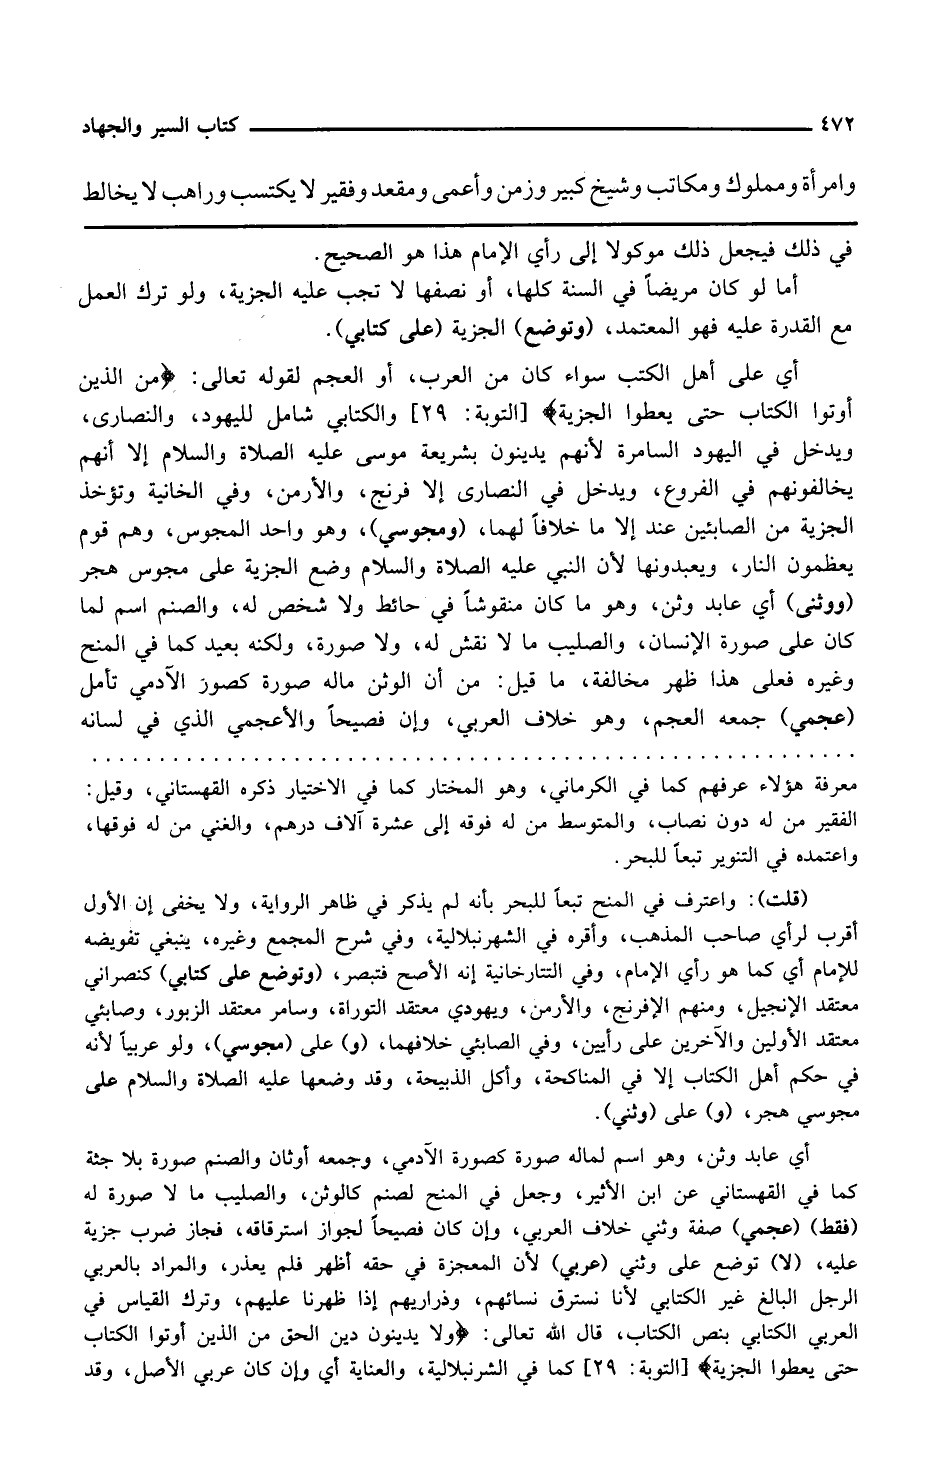 ٤٧٢ كتاب السير والجهاد
وامرأة ومملوك ومكاتب وشيخ كبير وزمن وأعمى ومقعد وفقير لا يكتسب وراهب لا يخالط
في ذلك فيجعل ذلك موكولا إلى رأي الإمام هذا هو الصحيح.
أما لو كان مريضاً في السنة كلها، أو نصفها لا تجب عليه الجزية، ولو ترك العمل
مع القدرة عليه فهو المعتمد، (وتوضع) الجزية (على كتابي).
أي على أهل الكتب سواء كان من العرب، أو العجم لقوله تعالى: ﴿من الذين
أوتوا الكتاب حتى يعطوا الجزية﴾ [التوبة: ٢٩] والكتابي شامل لليهود، والنصارى،
ويدخل في اليهود السامرة لأنهم يدينون بشريعة موسى عليه الصلاة والسلام إلا أنهم
يخالفونهم في الفروع، ويدخل في النصارى إلا فرنج، والأرمن، وفي الخانية وتؤخذ
الجزية من الصابئين عند إلا ما خلافاً لهما، (ومجوسي)، وهو واحد المجوس، وهم قوم
يعظمون النار، ويعبدونها لأن النبي عليه الصلاة والسلام وضع الجزية على مجوس هجر
(ووثنى) أي عابد وثن، وهو ما كان منقوشاً في حائط ولا شخص له، والصنم اسم لما
كان على صورة الإنسان، والصليب ما لا نقش له، ولا صورة، ولكنه بعيد كما في المنح
وغيره فعلى هذا ظهر مخالفة، ما قيل: من أن الوثن ماله صورة كصورَ الآدمي تأمل
(عجمي) جمعه العجم، وهو خلاف العربي، وإن فصيحاً والأعجمي الذي في لسانه
معرفة هؤلاء عرفهم كما في الكرماني، وهو المختار كما في الاختيار ذكره القهستاني، وقيل:
الفقير من له دون نصاب، والمتوسط من له فوقه إلى عشرة آلاف درهم، والغني من له فوقها،
واعتمده في التنوير تبعاً للبحر.
(قلت): واعترف في المنح تبعاً للبحر بأنه لم يذكر في ظاهر الرواية، ولا يخفى إن الأول
أقرب لرأي صاحب المذهب، وأقره في الشهرنبلالية، وفي شرح المجمع وغيره، ينبغي تفويضه
للإمام أي كما هو رأي الإمام، وفي التتارخانية إنه الأصح فتبصر، (وتوضع على كتابي) كنصراني
معتقد الإنجيل، ومنهم الإفرنج، والأرمن، ويهودي معتقد التوراة، وسامر معتقد الزبور، وصابئي
معتقد الأولين والآخرين على رأيين، وفي الصابئي خلافهما، (و) على (مجوسي)، ولو عربياً لأنه
في حكم أهل الكتاب إلا في المناكحة، وأكل الذبيحة، وقد وضعها عليه الصلاة والسلام على
مجوسي هجر، (و) على (وثني).
أي عابد وثن، وهو اسم لماله صورة كصورة الآدمي، وجمعه أوثان والصنم صورة بلا جثة
كما في القهستاني عن ابن الأثير، وجعل في المنح لصنم كالوثن، والصليب ما لا صورة له
(فقط) (عجمي) صفة وثني خلاف العربي، وإن كان فصيحاً لجواز استرقاقه، فجاز ضرب جزية
عليه، (لا) توضع على وثني (عربي) لأن المعجزة في حقه أظهر فلم يعذر، والمراد بالعربي
الرجل البالغ غير الكتابي لأنا نسترق نسائهم، وذراريهم إذا ظهرنا عليهم، وترك القياس في
العربي الكتابي بنص الكتاب، قال الله تعالى: ﴿ولا يدينون دين الحق من الذين أوتوا الكتاب
حتى يعطوا الجزية﴾ [التوبة: ٢٩] كما في الشرنبلالية، والعناية أي وإن كان عربي الأصل، وقد